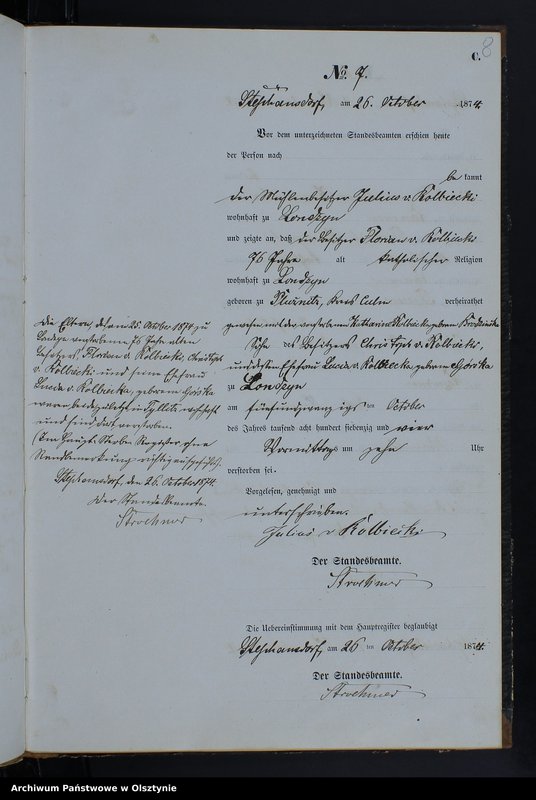 C. 8
No. 7.
Stephansdorf, am 26. October 1874.
Vor dem unterzeichneten Standesbeamten erschien heute
der Person nach
be kannt
der Mühlenbesitzer Julius v. Kolbiecki
wohnhaft zu Londzyn
und zeigte an, daß der Besitzer Florian v. Kolbiecki
76 Jahre alt katholischer Religion
wohnhaft zu Londzyn
geboren zu Pluznitz, Kreis Culm verheirathet
gewesen mit der verstorbenen Katharina Kolbiecka geborenen
Sohn des Besitzers Christoph v. Kolbiecki,
und dessen Ehefrau Lucia v. Kolbiecka, geborenen Górska
zu Londzyn
am fünfundzwanzigsten October
des Jahres tausend acht hundert siebenzig und vier
Vormittags um zehn Uhr
verstorben sei.
Vorgelesen, genehmigt und
unterschrieben.
Julius v Kolbiecki
Der Standesbeamte.
Die Uebereinstimmung mit dem Hauptregister beglaubigt
Stephansdorf, am 26 ten October 1874.
Der Standesbeamte.
Die Eltern des am 25. October 1874 zu
verstorbenen 76 Jahre alten
Besitzers Florian v. Kolbiecki, Christoph
v. Kolbiecki und seine Ehefrau
Lucia v. Kolbiecka, geborene Górska
waren zuletzt in wohnhaft
und sind dort verstorben.
Im Haupt-Sterbe-Register ohne
Randbemerkung richtig
Stephansdorf, den 26. October 1874.
Der Standesbeamte.
Archiwum Państwowe w Olsztynie